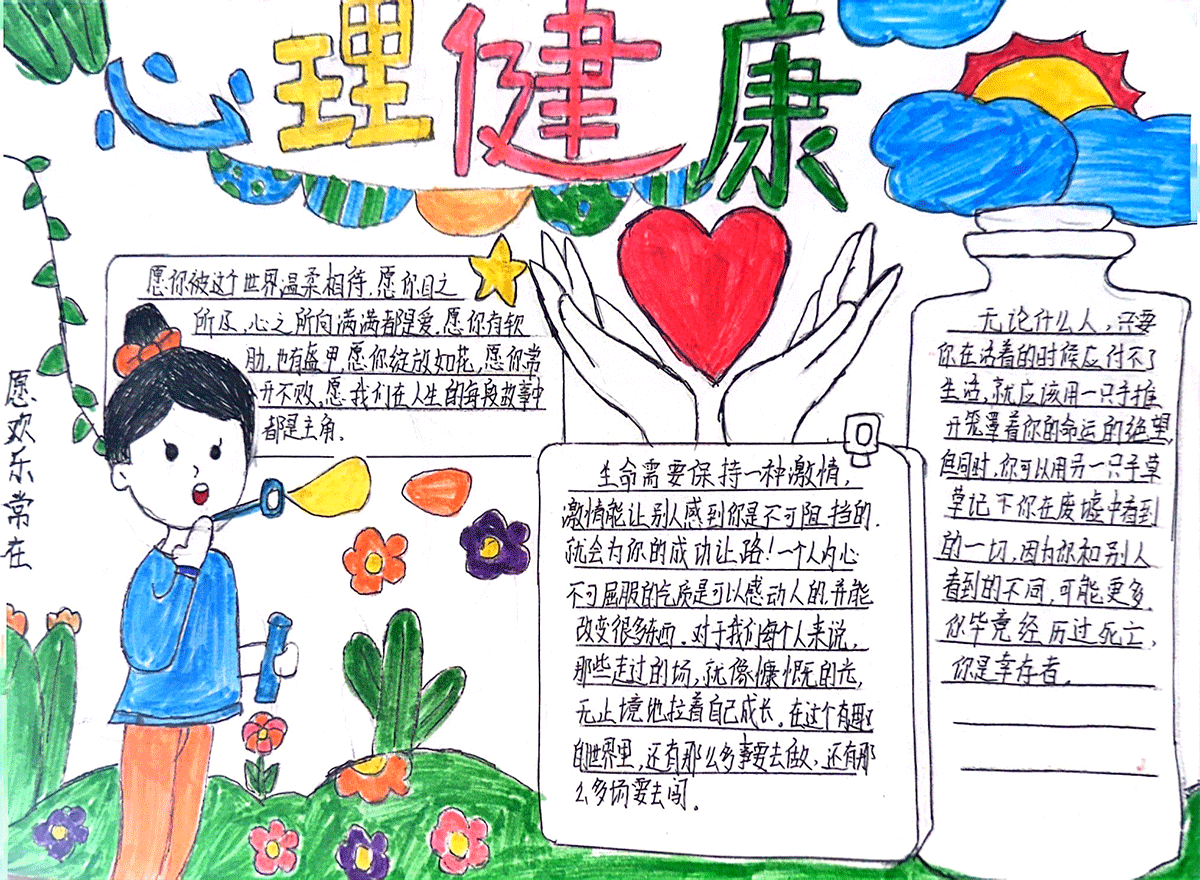 心理健康
愿你被这个世界温柔相待,愿你目之
所及,心之所向满满都是爱,愿你有软
肋,也有盔甲,愿你绽放如花,愿你常
开不败,愿我们在人生的每段故事中
都是主角。
愿欢乐常在
生命需要保持一种激情,
激情能让别人感到你是不可阻挡的.
就会为你的成功让路!一个人内心
不可屈服的气质是可以感动人的,并能
改变很多东西.对于我们每个人来说,
那些走过的场,就像慷慨的光,
无止境地拉着自己成长,在这个有趣
的世界里,还有那么多事要去做,还有那
么多场要去闯。
无论什么人,只要
你在活着的时候应付不了
生活,就应该用一只手推
开笼罩着你的命运的绝望,
但同时,你可以用另一只手草
草记下你在废墟中看到
的一切,因为你和别人
看到的不同,可能更多.
你毕竟经历过死亡,
你是幸存者。